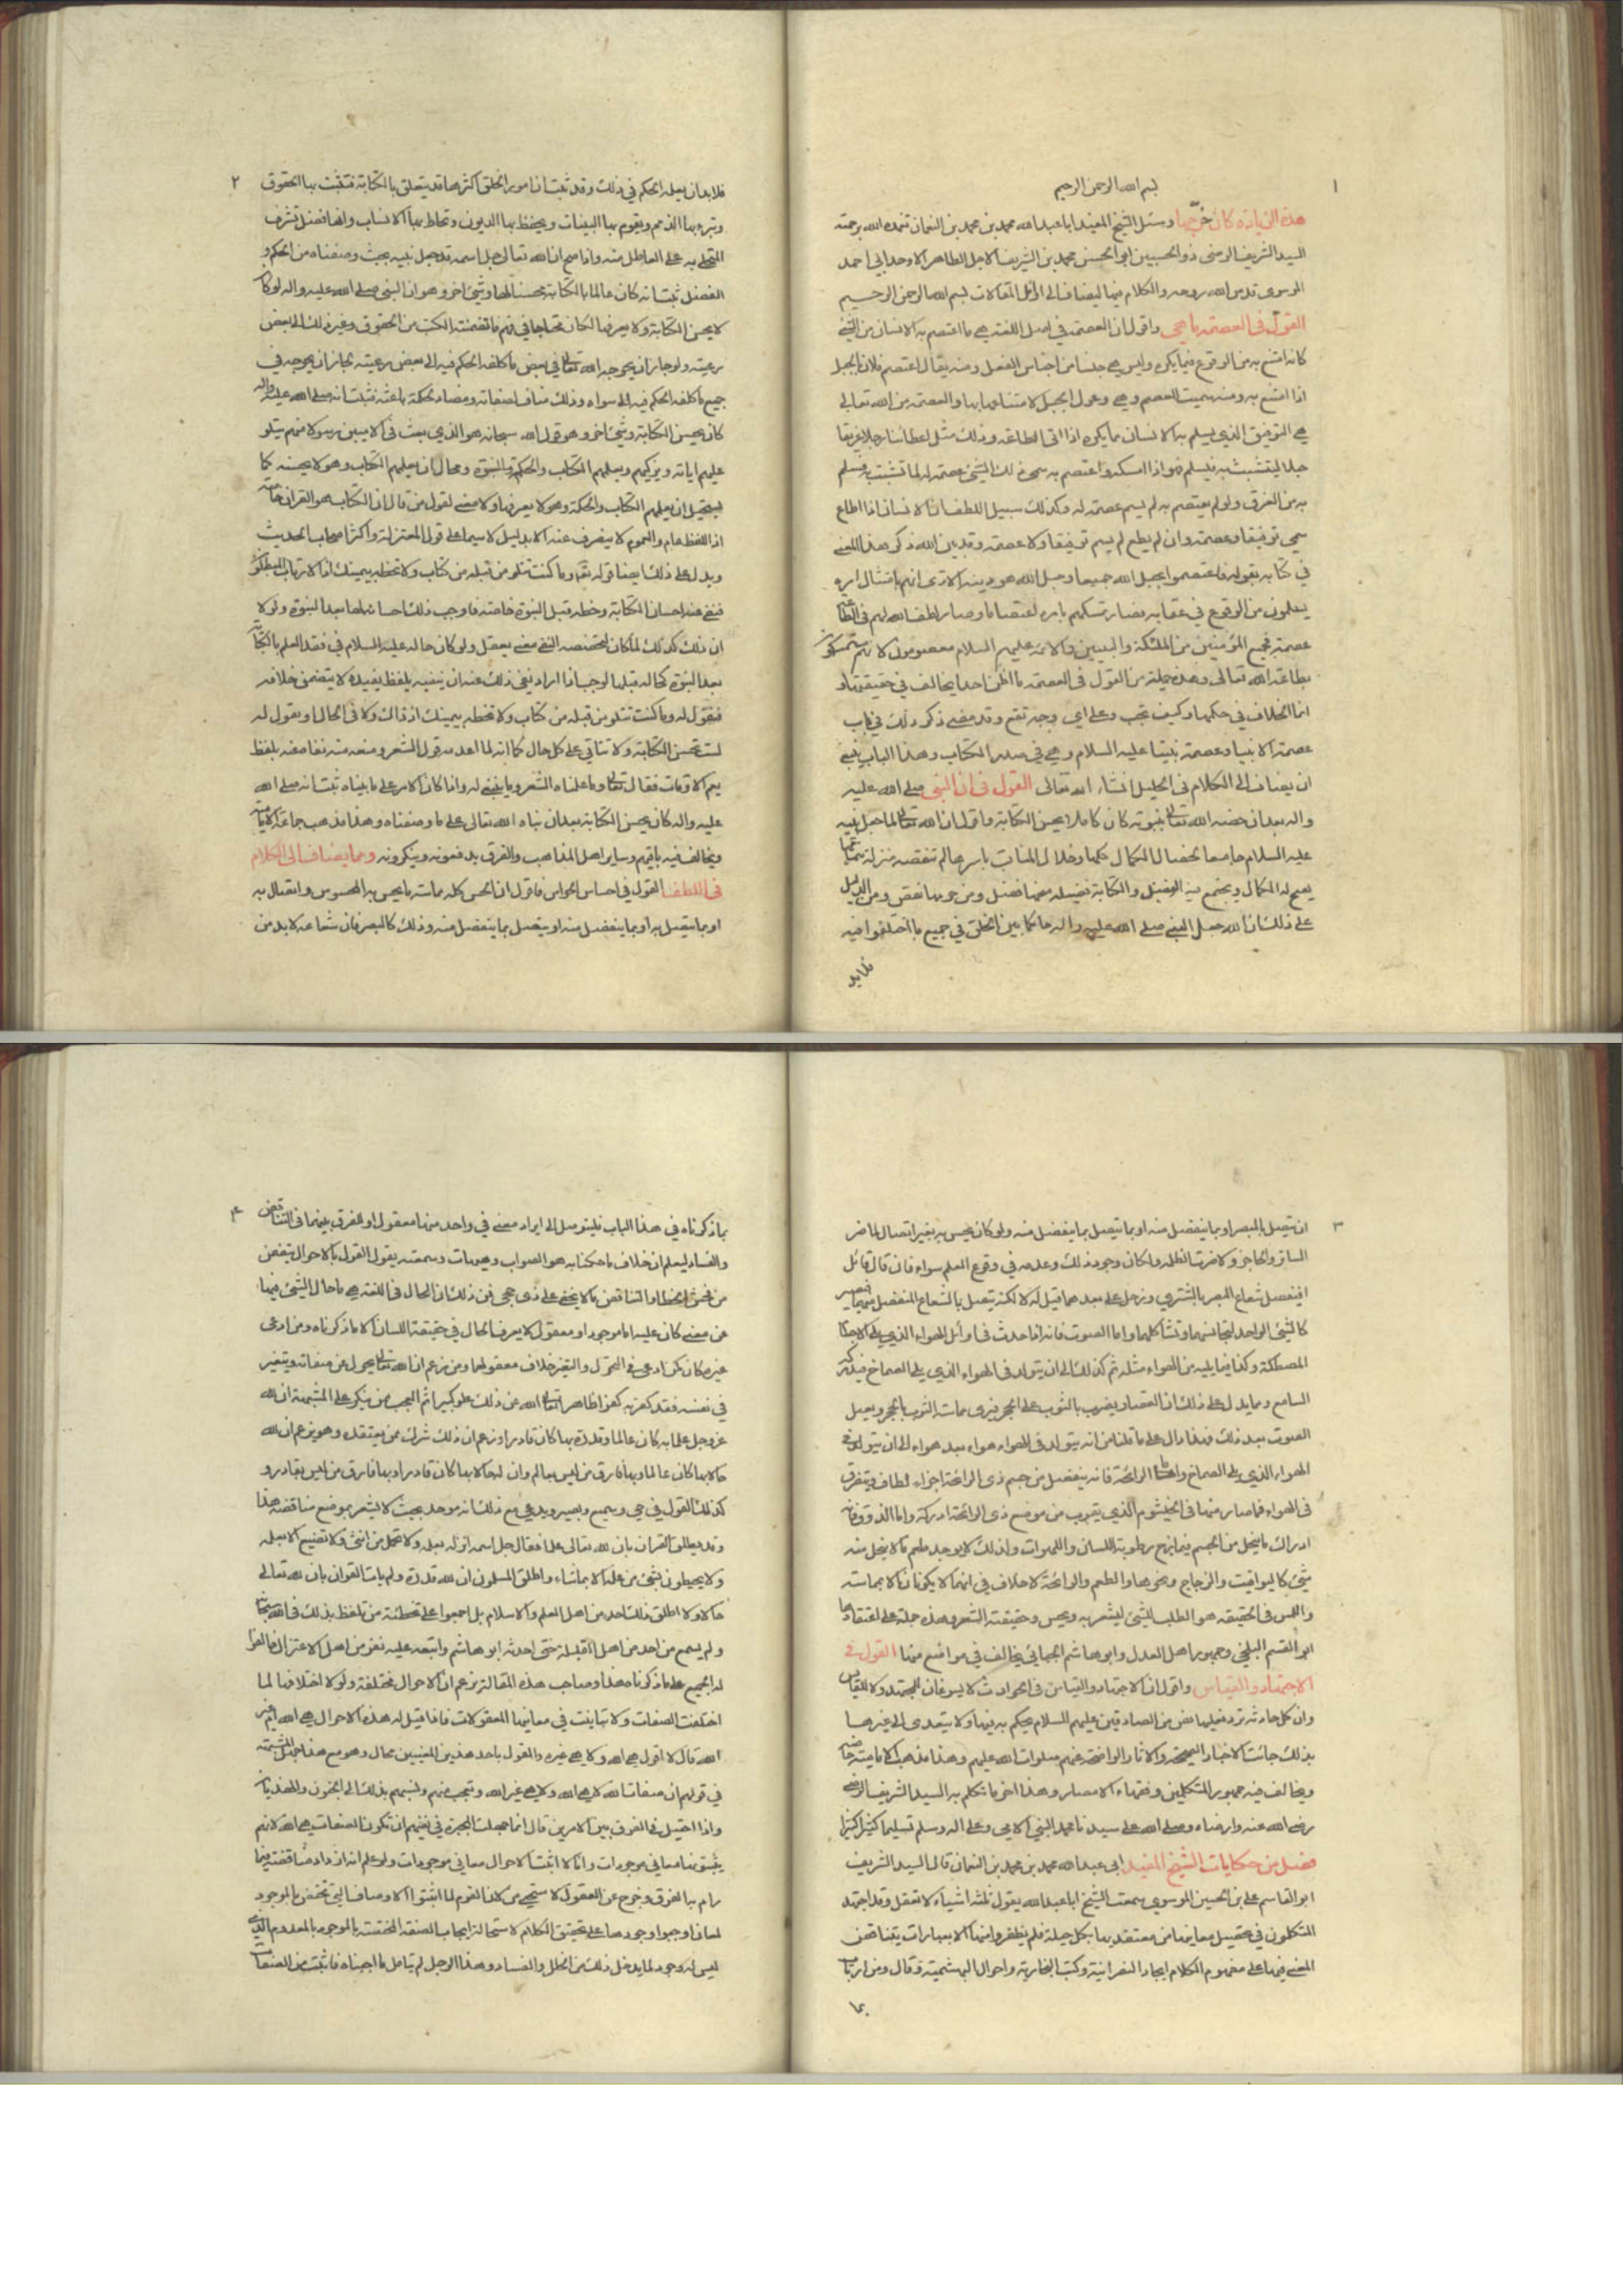 ١
بسم الله الرحمن الرحيم
هذه الزيادة كان خرّجها وسئل الشيخ المفيد ابا عبد الله محمد بن محمد بن النعمان تغمده الله برحمته
السيد الشريف الرضى ذو الحسبين ابو الحسن محمد بن الشريف الاجل الطاهر الاوحد ابي احمد
الموسوى قدس الله روحه والكلام فيما ليضاف الى اوائل المقالات بسم الله الرحمن الرحيم
القول فى العصمة ما هى واقول ان العصمة في اصل اللغة هي ما اعتصم به الانسان من الشئ
كانه امتنع به من الوقوع فيما يكره وليس هي جنسا من اجناس الفعل ومنه يقال اعتصم فلان بالجبل
اذا امتنع به ومنه سميت العصم وهي وعول الجبل لامتناعها بها والعصمة من الله تعالى
هي التوفيق الذي يسلم به الانسان مما يكره اذا اتى بالطاعة وذلك مثل اعطائنا رجلا غريقا
حبلا ليتشبث به فيسلم فهو اذا امسكه واعتصم به سمي ذلك الشئ عصمة له لما تشبث به فسلم
به من الغرق ولو لم يعتصم به لم يسم عصمة له وكذلك سبيل اللطف ان الانسان اذا اطاع
سمي توفيقا وعصمة وان لم يطع لم يسم توفيقا ولا عصمة وقد بين الله ذكر هذا المعنى
في كتابه بقوله واعتصموا بحبل الله جميعا وحبل الله هو دينه الا ترى انهم بامتثال امره
يسلمون من الوقوع في عقابه فصار تمسكهم بامره اعتصاما وصار لطف الله لهم فى الطاعة
عصمة فجميع المؤمنين من الملئكة والنبيين والائمة عليهم السلام معصومون لانهم متمسكون
بطاعة الله تعالى وهذه جملة من القول فى العصمة ما اظن احدا يخالف في حقيقتها و
انما الخلاف في حكمها وكيف تجب وعلى اي وجه تقع وقد مضى ذكر ذلك في باب
عصمة الانبياء وعصمة نبينا عليه السلام وهي في صدر الكتاب وهذا الباب ينبغي
ان يضاف الى الكلام فى الجليل انشاء الله تعالى القول فى ان النبى صلى الله عليه
واله بعد ان خصه الله تعالى بنبوته كان كاملا يحسن الكتابة واقول ان الله تعالى لما جعل نبيه
عليه السلام جامعا لخصال الكمال كلها وخلال المناقب باسرها لم تنقصه منزلة بتمامها
يصح له الكمال ويجتمع فيه الفضل والكتابة فضيلة من منحها فضل ومن حرمها نقص ومن الدليل
على ذلك ان الله جعل النبي صلى الله عليه واله حاكما بين الخلق في جميع ما اختلفوا فيه
فلا بد
٢
فلا بد ان يعلمه الحكم في ذلك وقد ثبت ان امور الخلق اكثرها قد يتعلق بالكتابة فتثبت بها الحقوق
وتبرء بها الذمم ويقوم بها البينات ويحفظ بها الديون وتحاط بها الانساب وانها فضل تشرف
المتحلي به على العاطل منه واذا صح ان الله تعالى جل اسمه قد جعل نبيه بحيث وصفناه من الحكم و
الفضل ثبت انه كان عالما بالكتابة محسنا لها وشئ اخر وهو ان النبى صلى الله عليه واله لو كان
لا يحسن الكتابة ولا يعرفها لكان محتاجا في فهم ما تضمنته الكتب من الحقوق وغير ذلك الى بعض
رعيته ولو جاز ان يحوجه الله تعالى في بعض ما كلفه الحكم فيه الى بعض رعيته لجاز ان يحوجه في
جميع ما كلفه الحكم فيه الى سواه وذلك مناف لصفاته ومضاد لحكمة باعثه فثبت انه صلى الله عليه واله
كان يحسن الكتابة وشئ اخر وهو قول الله سبحانه هو الذي بعث فى الاميين رسولا منهم يتلو
عليهم اياته ويزكيهم ويعلمهم الكتاب والحكمة والنبوة ومحال ان يعلمهم الكتاب وهو لا يحسنه كما
يستحيل ان يعلمهم الكتاب والحكمة وهو لا يعرفها ولا معنى لقول من قال ان الكتاب هو القران خاصة
اذ اللفظ عام والعموم لا ينصرف عنه الا بدليل لا سيما على قول المعتزلة واكثر اصحاب الحديث
ويدل على ذلك ايضا قوله تعالى وما كنت تتلو من قبله من كتاب ولا تخطه بيمينك اذا لارتاب المبطلون
فنفى عنه احسان الكتابة وخطه قبل النبوة خاصة فاوجب ذلك احسانه لها بعد النبوة ولولا
ان ذلك كذلك لما كان لتخصيصه النفي معنى يعقل ولو كان حاله عليه السلام في فقد العلم بالكتابة
بعد النبوة كحاله قبلها لوجب اذا اراد نفي ذلك عنه ان ينفيه بلفظ يفيده لا يتضمن خلافه
فيقول له وما كنت تتلو من قبله من كتاب ولا تخطه بيمينك اذ ذاك ولا فى الحال او يقول له
لست تحسن الكتابة ولا تتاتى على كل حال كما انه لما اعدمه قول الشعر ومنعه منه نفاه عنه بلفظ
يعم الاوقات فقال تعالى وما علمناه الشعر وما ينبغي له واذا كان الامر على ما بيناه ثبت انه صلى الله
عليه واله كان يحسن الكتابة بعد ان نباه الله تعالى على ما وصفناه وهذا مذهب جماعة من الامامية
ويخالف فيه باقيهم وساير اهل المذاهب والفرق يدفعونه وينكرونه ومما يضاف الى الكلام
فى اللطف القول في احساس الحواس فاقول ان الحس كله مماسة ما يحس به المحسوس واتصال به
او بما يتصل به او بما ينفصل منه او يتصل بما ينفصل منه وذلك كالبصر فان شعاعه لا بد من
٣
ان يتصل بالمبصر او بما ينفصل منه او بما يتصل بما ينفصل منه ولو كان يحس به بغير اتصال لما ضر
الساتر والحاجز ولا ضرت الظلمة ولكان وجود ذلك وعدمه في وقوع العلم سواء فان قال قائل
افيتصل شعاع البصر بالمشتري وزحل على بعدهما قيل له لا لكنه يتصل بالشعاع المنفصل منهما فيصير
كالشئ الواحد لتجانسهما وتشاكلهما واما الصوت فانه اذا حدث فى اوائل الهواء الذي يلي الاجسام
المصطكة وكذا فيما يليه من الهواء مثله ثم كذلك الى ان يتولد فى الهواء الذي يلي الصماخ فيدركه
السامع ومما يدل على ذلك ان القصار يضرب بالثوب على الحجر فيرى مماسة الثوب بالحجر ويصل
الصوت بعد ذلك فهذا دال على ما قلناه من انه يتولد فى الهواء هواء بعد هواء الى ان يتولد في
الهواء الذي يلي الصماخ واما الرائحة فانه ينفصل من جسم ذى الرائحة اجزاء لطاف ويتفرق
فى الهواء فما صار منها فى الخيشوم الذي يقرب من موضع ذى الرائحة ادركه واما الذوق فانه
ادراك ما ينحل من الجسم فيمازج رطوبة اللسان واللهوات ولذلك لا يوجد طعم ما لا ينحل منه
شئ كاليواقيت والزجاج ونحوها والطعم والرائحة لا خلاف في انهما لا يكونان الا بمماسة
واللمس فى الحقيقة هو الطلب للشئ ليشعر به ويحس وحقيقة الشعر وهذه جملة على اعتقادها
ابو القسم البلخي وجمهور اهل العدل وابو هاشم الجبائي يخالف في مواضع منها القول فى
الاجتهاد والقياس واقول ان الاجتهاد والقياس فى الحوادث لا يسوغان للمجتهد ولا للقايس
وان كل حادثة ترد فعليها نص من الصادقين عليهم السلام يحكم به فيها ولا يتعدى الى غيرها
بذلك جائت الاخبار الصحيحة والاثار الواضحة عنهم صلوات الله عليهم وهذا مذهب الامامية خاصة
ويخالف فيه جمهور المتكلمين وفقهاء الامصار وهذا اخر ما تكلم به السيد الشريف الرضي
رضي الله عنه وارضاه وصلى الله على سيدنا محمد النبي الامي وعلى اله وسلم تسليما كثيرا كثيرا
فصل من حكايات الشيخ المفيد ابى عبد الله محمد بن محمد بن النعمان قال السيد الشريف
ابو القاسم على بن الحسين الموسوي سمعت الشيخ ابا عبد الله يقول ثلثة اشياء لا تعقل وقد اجتهد
المتكلمون في تحصيل معانيها من معتقديها بكل حيلة فلم يظفروا منها الا بعبارات يتناقض
المعنى فيها على مفهوم الكلام اتحاد النصرانية وكسب النجارية واحوال البهشمية وقال ومن ارتاب
بما
٤
بما ذكرناه في هذا الباب فليتوصل الى ايراد معنى في واحد منها معقول او الفرق بينها فى التناقض
والفساد ليعلم ان خلاف ما حكمنا به هو الصواب وهيهات وسمعته يقول القول بالاحوال يتضمن
من فحش الخطاء والتناقض ما لا يخفى على ذى حجى فمن ذلك ان الحال فى اللغة هي ما حال الشئ فيها
عن معنى كان عليه اما موجود او معقول لا يعرف الحال في حقيقة اللسان الا ما ذكرناه ومن ادعى
غيره كان كمن ادعى فى التحول والتغير خلاف معقولهما ومن زعم ان الله تعالى يحول عن صفاته ويتغير
في نفسه فقد كفر به كفرا ظاهرا تعالى الله عن ذلك علوا كبيرا ثم العجب ممن ينكر على المشبهة ان لله
عز وجل علما به كان عالما وقدرة بها كان قادرا وزعم ان ذلك شرك ممن يعتقده وهو يزعم ان لله
حالا بها كان عالما وبها فارق من ليس بعالم وان له حالا بها كان قادرا وبها فارق من ليس بقادر و
كذلك القول في حي وسميع وبصير ويدعي مع ذلك انه موحد بحيث لا يشعر بموضع مناقضته هذا
وقد يطلق القران بان لله تعالى علما فقال جل اسمه انزله بعلمه ولا تحمل من انثى ولا تضيع الا بعلمه
ولا يحيطون بشئ من علمه الا بما شاء واطلق المسلمون ان لله قدرة ولم يات القران بان لله تعالى
حالا ولا اطلق ذلك احد من اهل العلم والاسلام بل اجمعوا على تخطئة من تلفظ بذلك فى الله سبحانه
ولم يسمع من احد من اهل القبلة حتى احدثه ابو هاشم واتبعه عليه نفر من اهل الاعتزال خالفوا
له الجميع على ما ذكرناه هذا وصاحب هذه المقالة يزعم ان الاحوال مختلفة ولولا اختلافها لما
اختلفت الصفات ولا تباينت في معانيها المعقولات فاذا قيل له هذه الاحوال هي الله ام غير
الله قال لا اقول هي الله ولا هي غيره والقول باحد هذين المعنيين محال وهو مع هذا جهل المشبهة
في قولهم ان صفات الله لا هي الله ولا هي غير الله وتعجب منهم ونسبهم بذلك الى الجنون والهذيان
واذا احتيل فى الفرق بين الامرين قال انما جهلت المجبرة في نفيهم ان تكون الصفات هي الله لانهم
يثبتونها معاني موجودات وانا لا اثبت الاحوال معاني موجودات ولو علم انه ازداد مناقضة فيما
رام به الفرق وخرج عن المعقول لاستحيى من ذلك القوم لما اثبتوا الاوصاف التي تختص بالموجود
لمعان اوجبوا وجودها على تحقيق الكلام لاستحالة ايجاب الصفة المختصة بالموجود بالمعدوم الذي
ليس له وجود لما يدخل ذلك من الخلل والفساد وهذا الرجل لم يتامل ما اجتناه فاثبت من الصفات